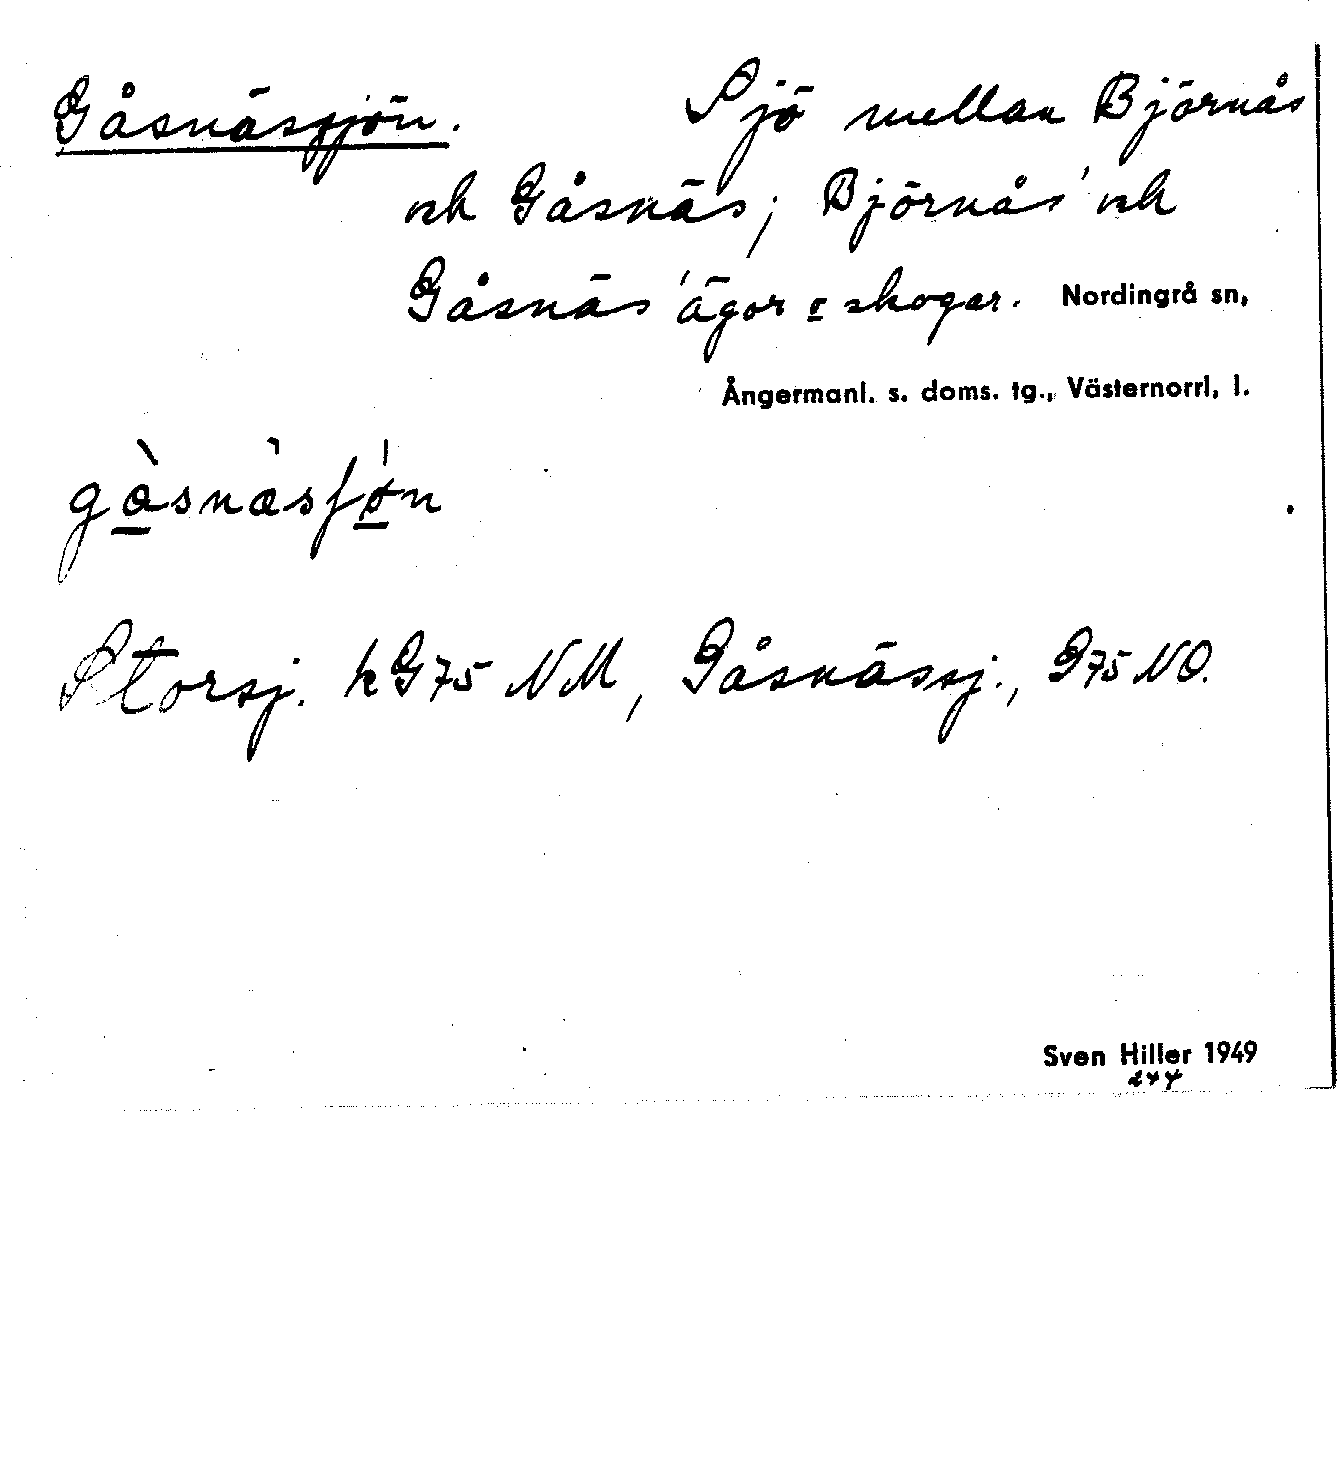 Gåsnässjön. Sjö mellan Björnås
och Gåsnäs; Björnås' och
Gåsnäs' ägor o skogar. Nordingrå sn,
Ångermanl. s. doms. tg., Västernorrl. l.
gåsnäsʃø̀n
Storsj. kG75 NM, Gåsnässj., G75 NO.
Sven Hiller 1949
244